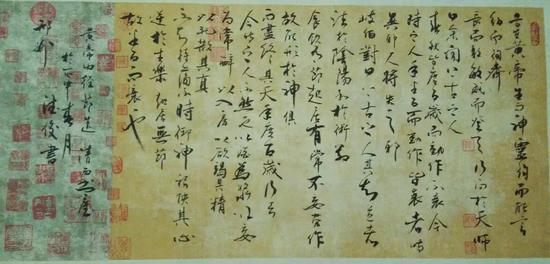 昔在黄帝生而神靈弱而能言
幼而徇齊
長而敦敏成而登天乃问於天师
曰余闻上古之人
春秋皆度百歲而动作不衰今
时之人年半百而动作皆衰者时
異耶人将失之耶
岐伯对曰上古之人其知道者
法於陰陽和於術数
食飲有节起居有常不妄劳作
故能形於神俱
而盡终其天年度百歲乃去
今时之人不然也以酒为漿以妄
为常醉以入房以欲竭其精
以耗散其真
不知持满不时御神務快其心
逆於生樂起居無節
故半百而衰也
黄帝内经節选
春月
書